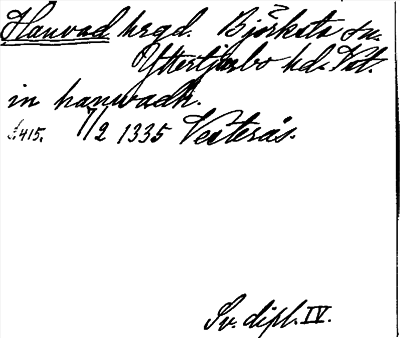 Hanvad hrgd. Björksta sn.
Yttertjurbo hd. Vst.
in hanwadh.
s. 415. 7/2 1335 Vesterås.
Sv. dipl. IV.